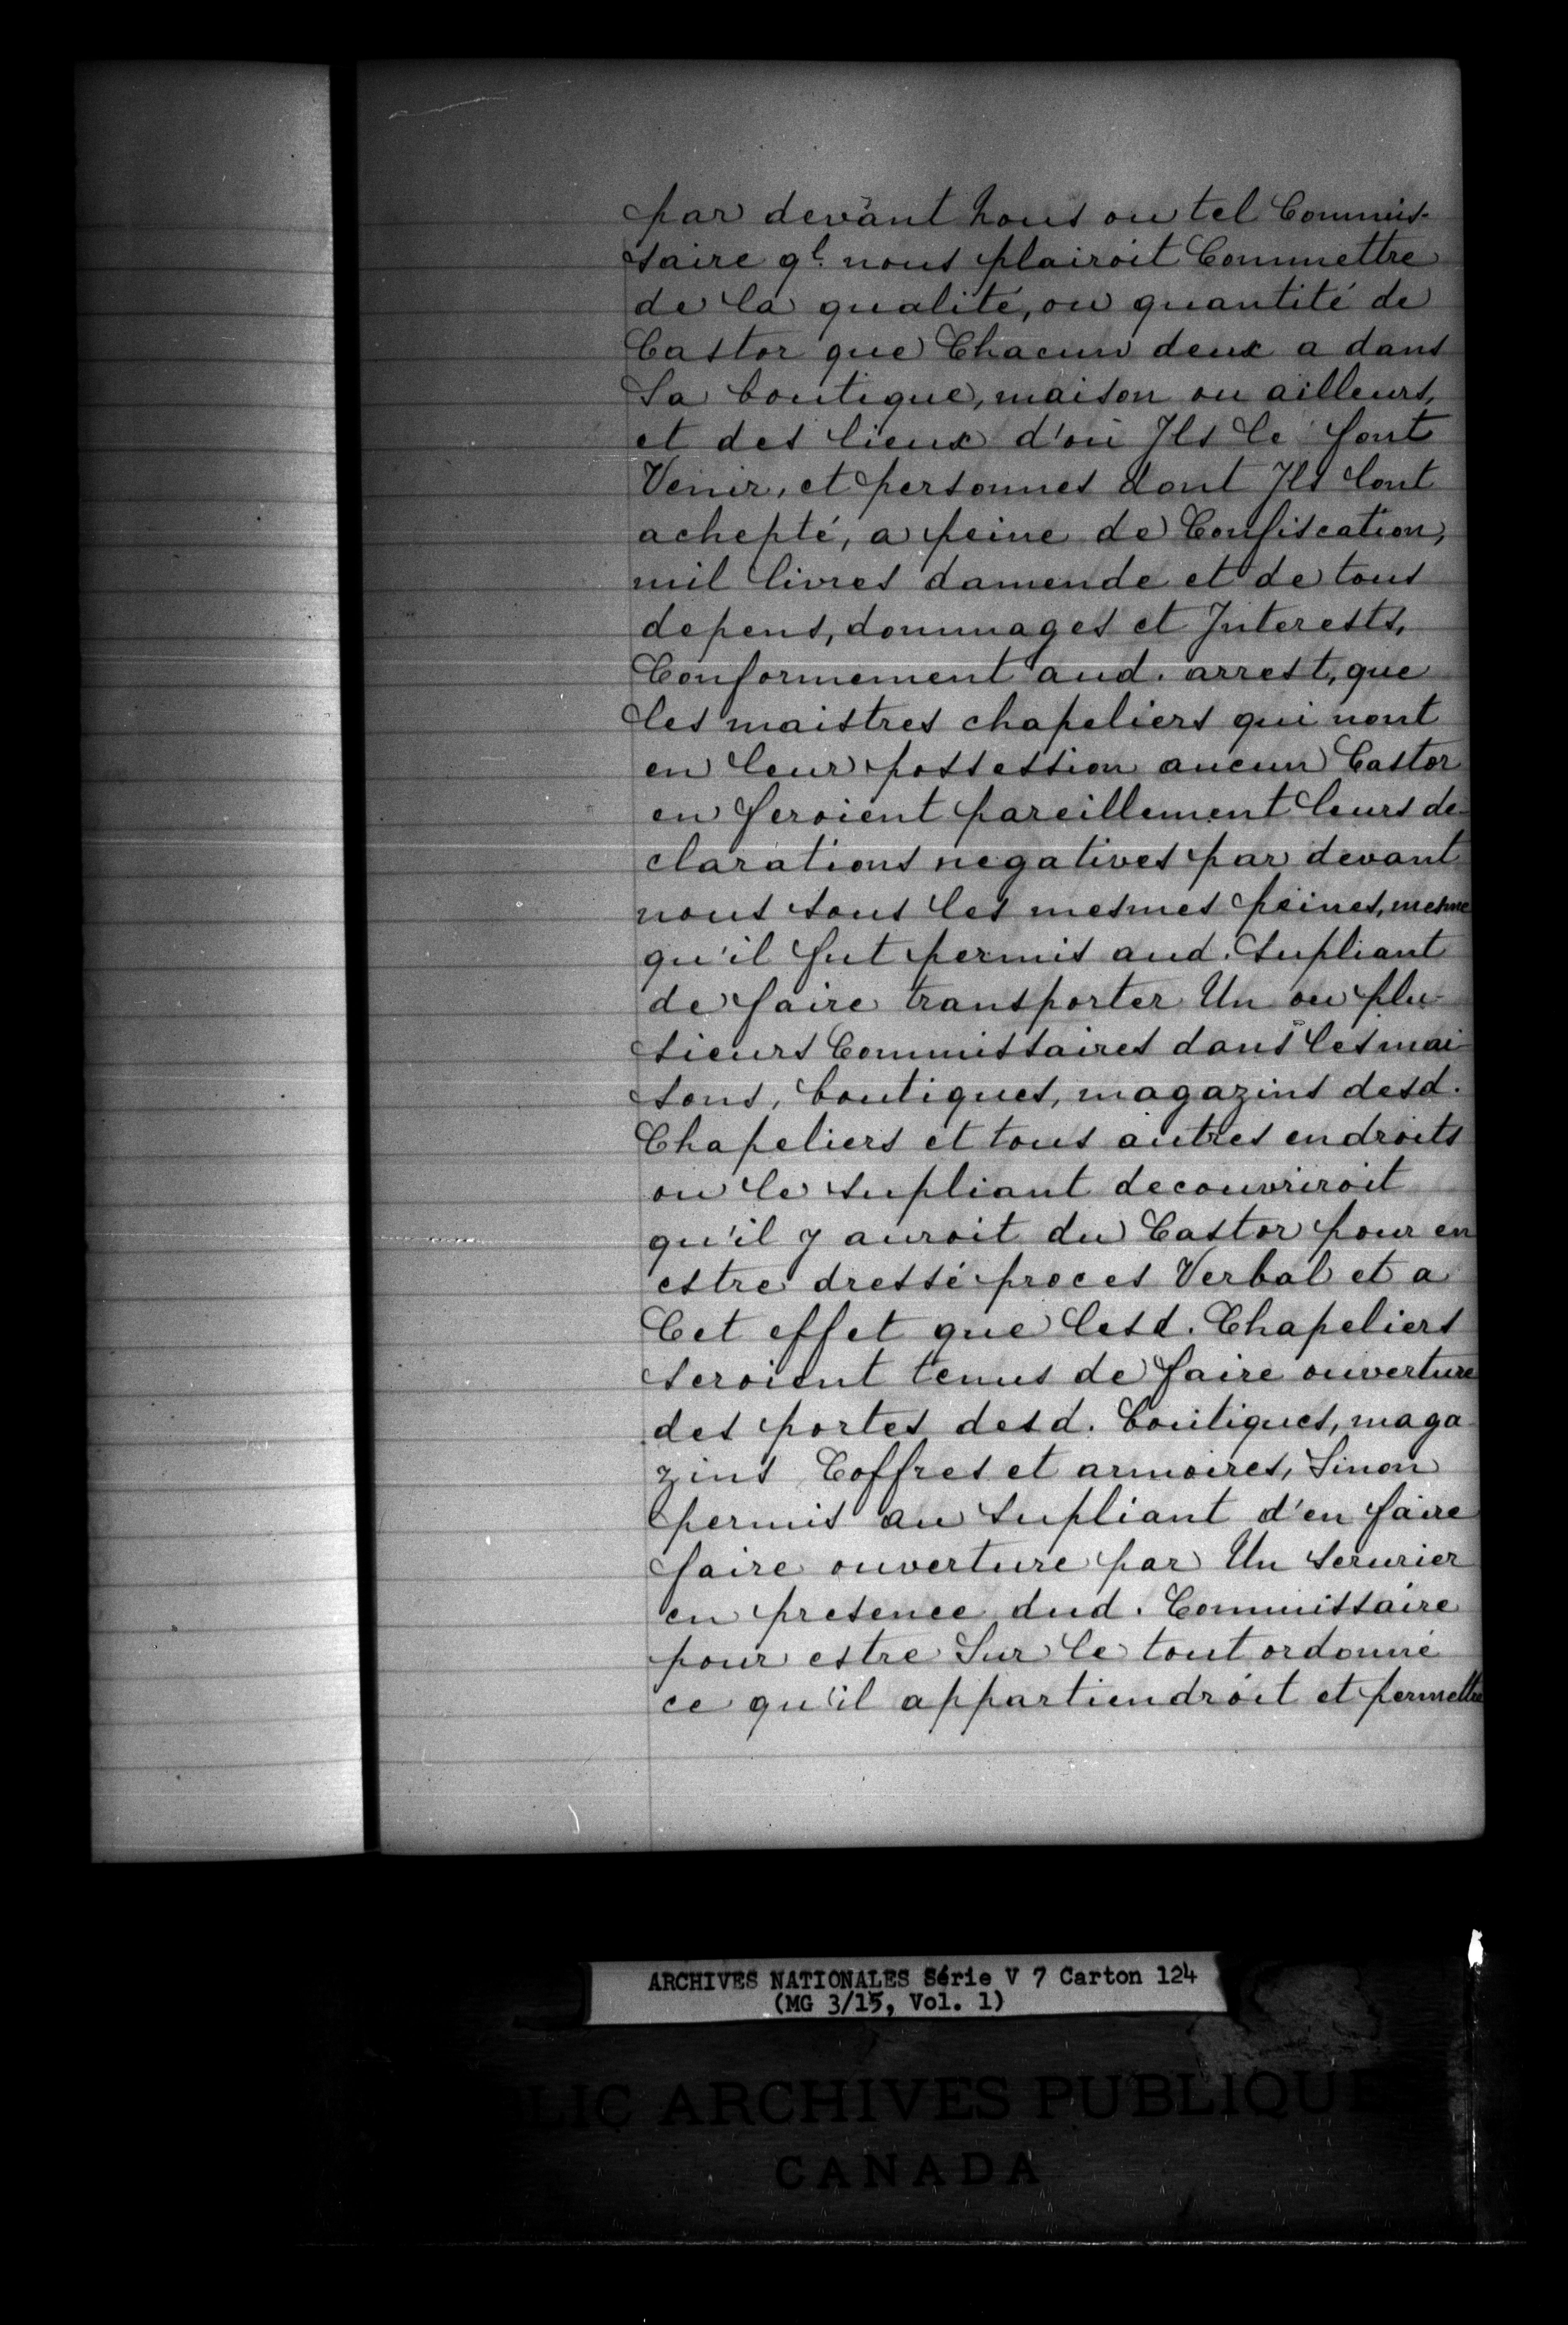 par devant nous ou tel Commis-
saire ql. nous plairoit Commettre
de la qualité, ou quantité de
Castor que Chacun deux a dans
Sa boutique, maison ou ailleurs,
et des lieux d'ou Ils le font
Venir, et personnes dont Ils lont
achepté, a peine de Confiscation,
mil livres damende et de tous
depens, dommages et Interests,
Conformement aud. arrest, que
les maistres chapeliers qui nont
en leur possession aucun Castor
en feroient pareillement leurs de-
clarations negatives par devant
nous sous les mesmes peines, mesme
qu'il fut permis aud. Supliant
de faire transporter Un ou plu-
sieurs Commissaires dans les mai-
sons, boutiques, magazins desd.
Chapeliers et tous autres endroits
ou le supliant decouvriroit
qu'il y auroit du Castor pour en
estre dressé proces Verbal et a
Cet effet que lesd. Chapeliers
seroient tenus de faire ouverture
des portes desd. boutiques, maga-
zins Coffres et armoires, Sinon
permis au supliant d'en faire
faire ouverture par Un serurier
en presence dud. Commissaire
pour estre Sur le tout ordonné
ce qu'il appartiendroit et permettre
ARCHIVES NATIONALES Série V 7 Carton 124
(MG 3/15, Vol. 1)
LIC ARCHIVES PUBLIQUE
CANADA